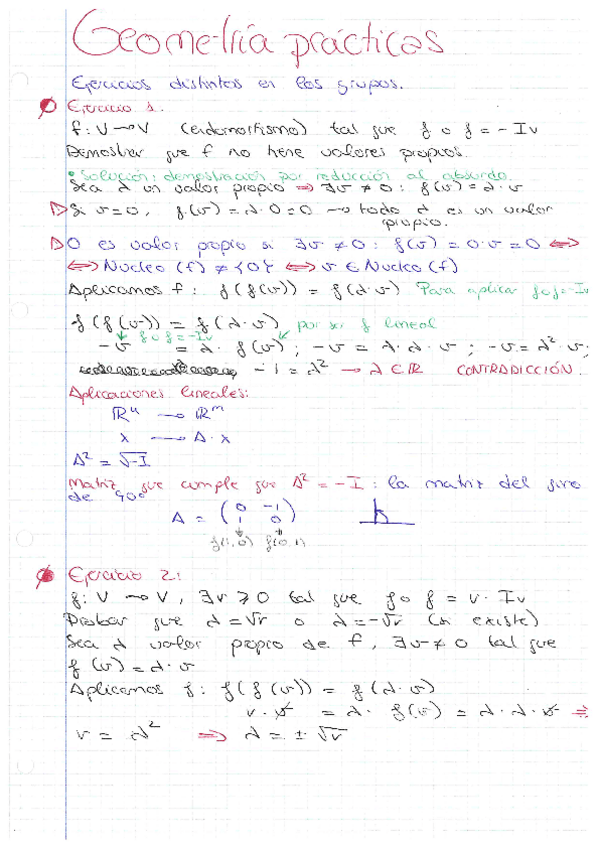 Geometría prácticas
Ejercicios distintos en los grupos.
Ejercicio 1.
f: V → V (endomorfismo) tal que f o f = - Iv
Demostrar que f no tiene valores propios.
• Solución: demostración por reducción al absurdo.
Sea λ un valor propio ⇒ ∃v ≠ 0 : f(v) = λ · v
▷ Si v=0, f(v) = λ · 0 = 0 → todo λ es un valor
propio.
▷ 0 es valor propio si ∃v ≠ 0 : f(v) = 0 · v = 0 ⇔
⇔ Nucleo (f) ≠ {0} ⇔ v ∈ Nucleo (f)
Aplicamos f : f(f(v)) = f(λ·v) Para aplicar fof=-Iv
f(f(v)) = f(λ·v) por ser f lineal
f o f = -Iv
-v = λ · f(v) ; -v = λ · λ · v ; -v = λ² · v;
-1 = λ² → λ ∈ ℝ CONTRADICCIÓN.
Aplicaciones lineales:
ℝⁿ → ℝᵐ
x → A · x
A² = √-I
Matriz que cumple que A² = - I : la matriz del giro
de 90º
A = ( 0 -1
1 0 )
f(1,0) f(0,1)
Ejercicio 2:
f: V → V , ∃r ⩾ 0 tal que f o f = r · Iv
Probar que λ = √r o λ = -√r (si existe)
Sea λ valor propio de f, ∃v ≠ 0 tal que
f(v) = λ · v
Aplicamos f : f(f(v)) = f(λ · v)
r · v = λ · f(v) = λ · λ · v ⇒
r = λ² ⇒ λ = ± √r